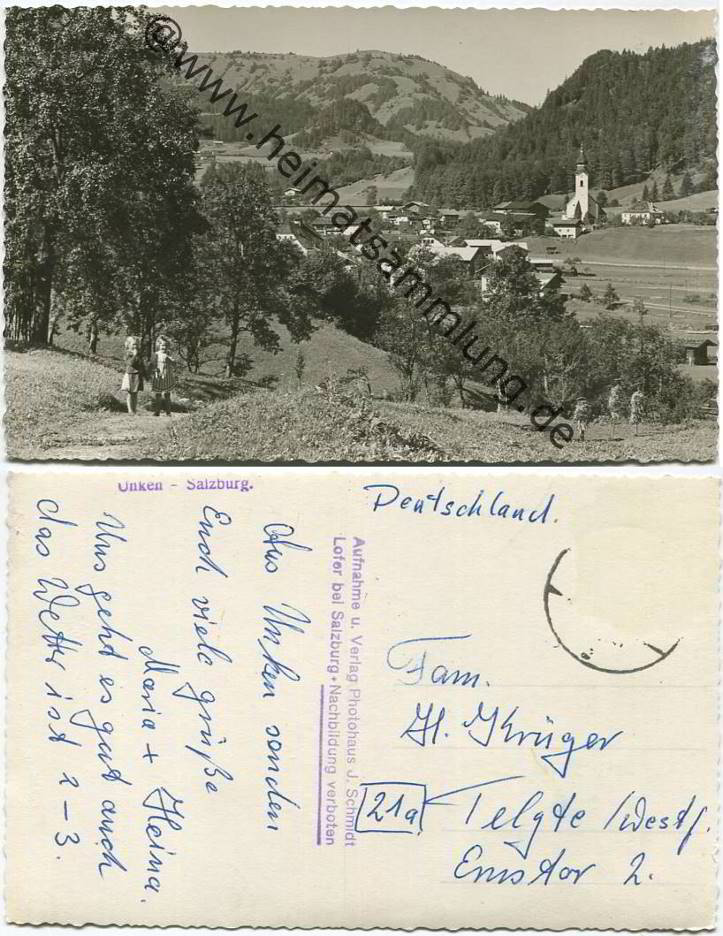 @www.heimatsammlung.de
Unken - Salzburg.
Aus Unken senden
Euch viele grüße
Maria + Heina.
Uns geht es gut auch
das Wetter ist 2-3.
Aufnahme u. Verlag Photohaus J. Schmidt
Lofer bei Salzburg • Nachbildung verboten
Deutschland.
Fam.
H. Krüger
21a Telgte / Westf.
Emstor 2.